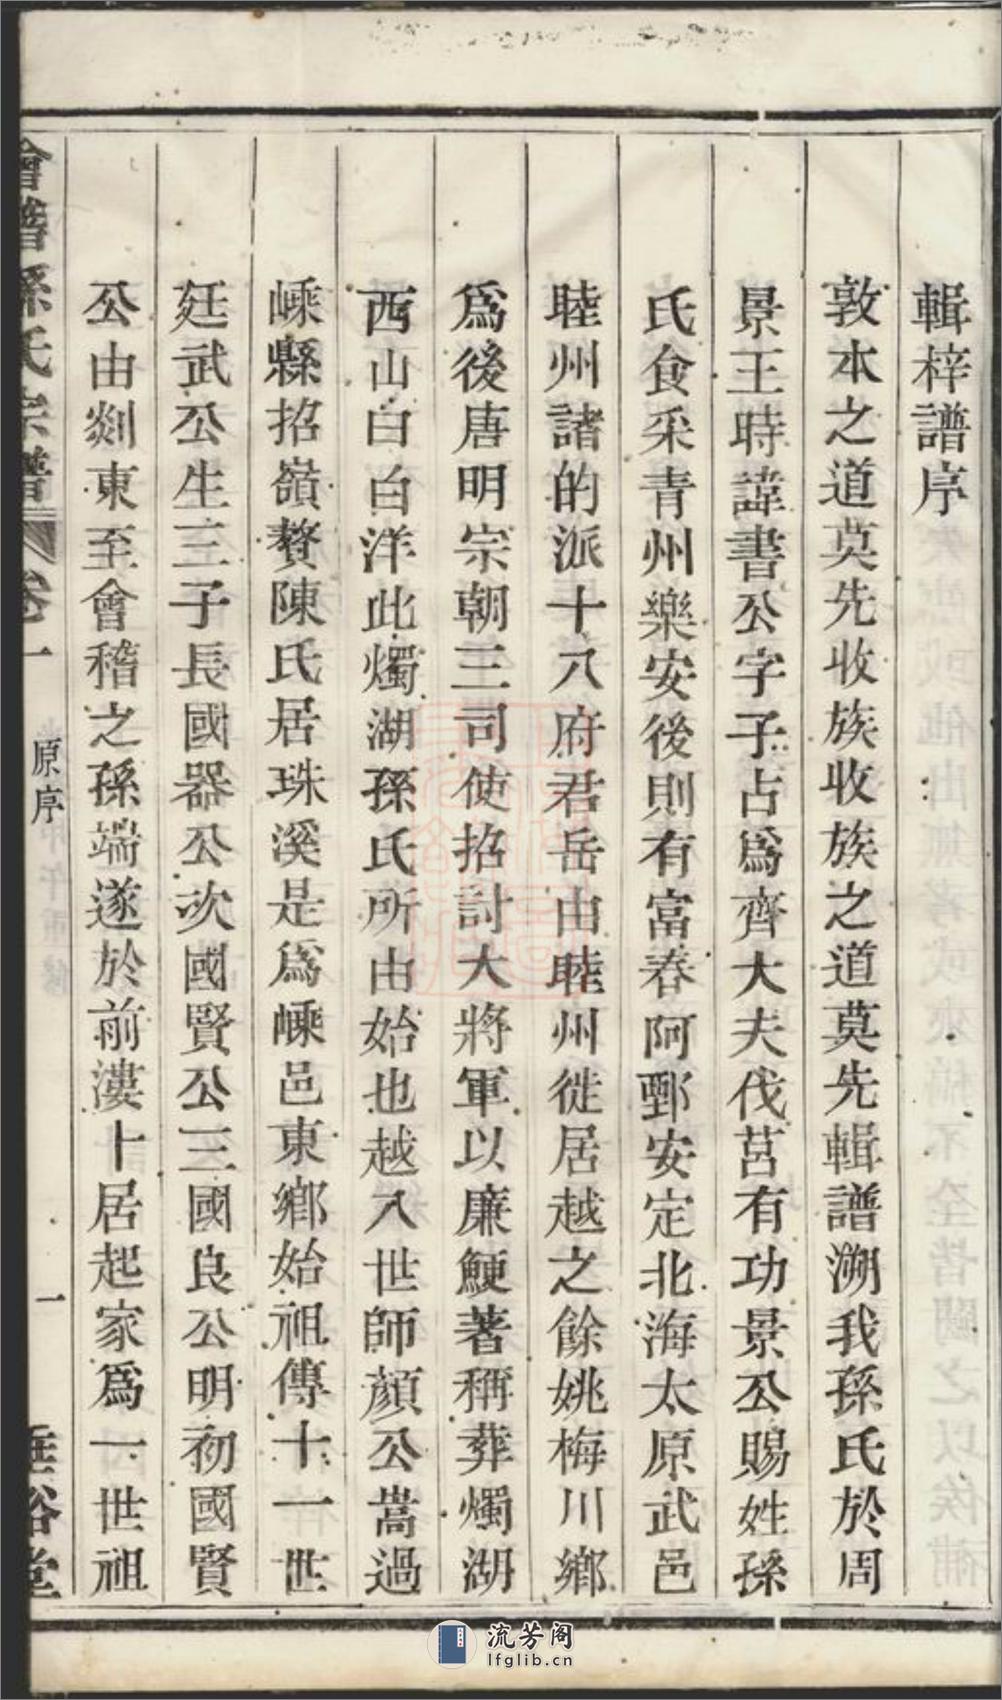 輯梓譜序
敦本之道莫先收族收族之道莫先輯譜溯我孫氏於周
景王時諱書公字子占爲齊大夫伐莒有功景公賜姓孫
氏食采青州樂安後則有富春阿鄄安定北海太原武邑
睦州諸的派十八府君岳由睦州徙居越之餘姚梅川鄉
爲後唐明宗朝三司使招討大將軍以廉鯁著稱葬燭湖
西山白白洋此燭湖孫氏所由始也越八世師顔公嵩過
嵊縣招嶺贅陳氏居珠溪是爲嵊邑東鄉始祖傳十一世
廷武公生三子長國器公次國賢公三國良公明初國賢
公由剡東至會稽之孫端遂於前溇卜居起家爲一世祖
會稽孫氏宗譜 卷一 原序 一 垂裕堂
流芳阁
lfglib.cn